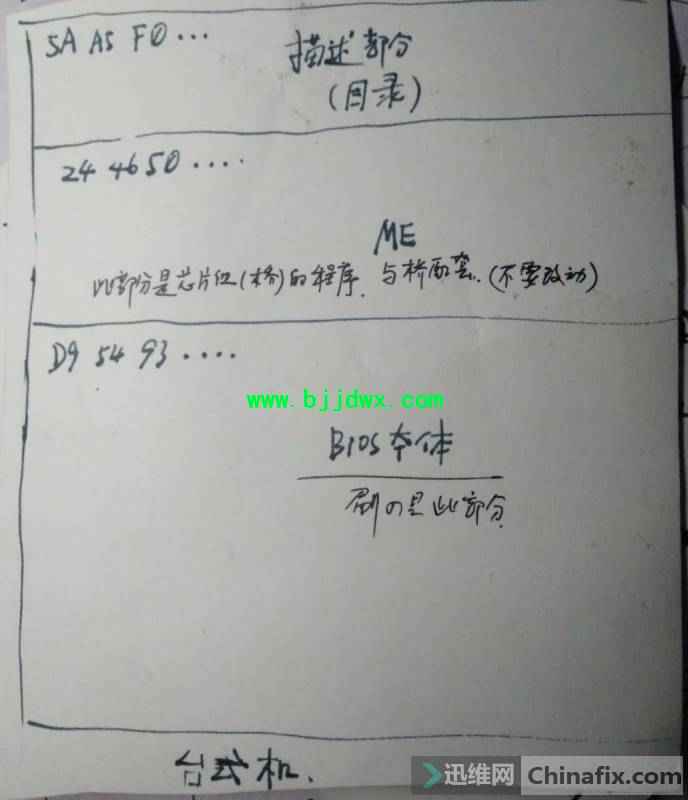 5A A5 F0 ...
描述部分
(目录)
24 46 50 ....
ME
此部分是芯片组(桥)的程序, 与桥配套. (不要改动)
D9 54 93 ....
www.bjjdwx.com
BIOS本体
刷の是此部分
台式机.
迅维网 Chinafix.com